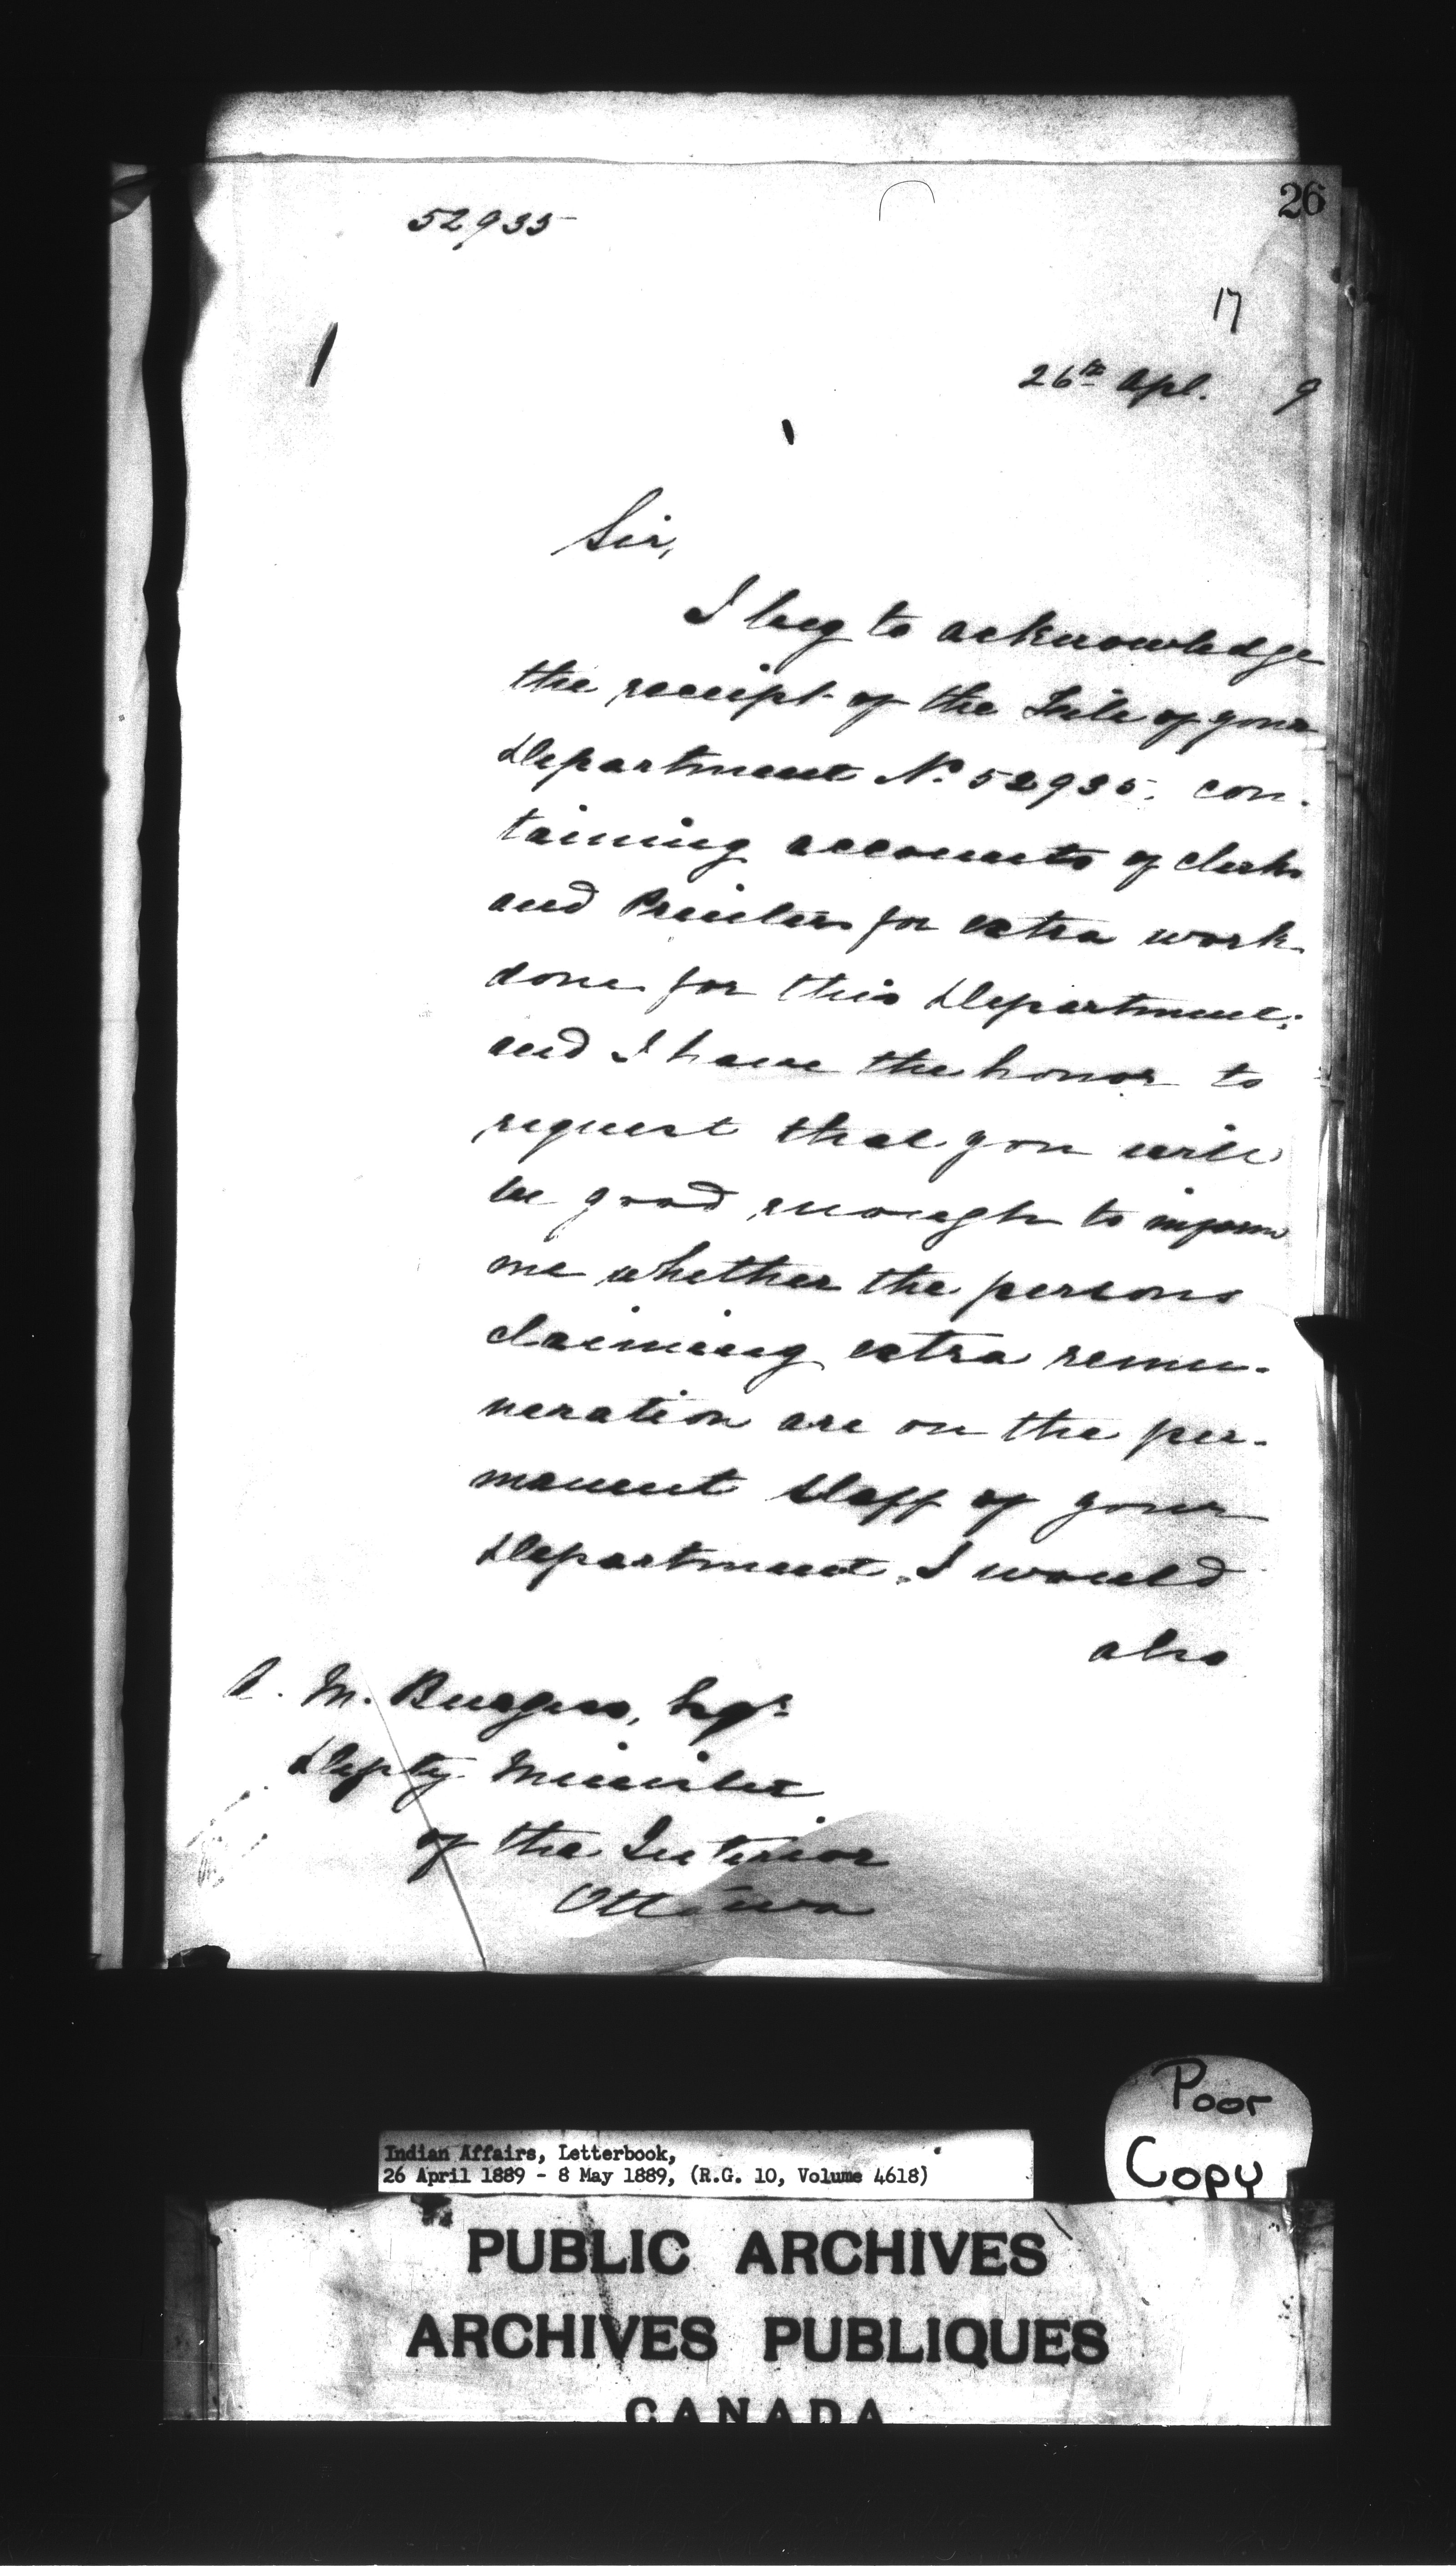 26
52935
17
26th Apl. 9
Sir,
I beg to acknowledge
the receipt of the File of your
Department No. 52935, con-
taining accounts of clerks
and Printers for extra work
done for this Department;
and I have the honor to
request that you will
be good enough to inform
me whether the persons
claiming extra remu-
neration are on the per-
manent Staff of your
Department. I would
also
A. M. Burgess, Esqr.
Depty. Minister
of the Interior
Ottawa
Poor
Copy
Indian Affairs, Letterbook,
26 April 1889 - 8 May 1889, (R.G. 10, Volume 4618)
PUBLIC ARCHIVES
ARCHIVES PUBLIQUES
CANADA